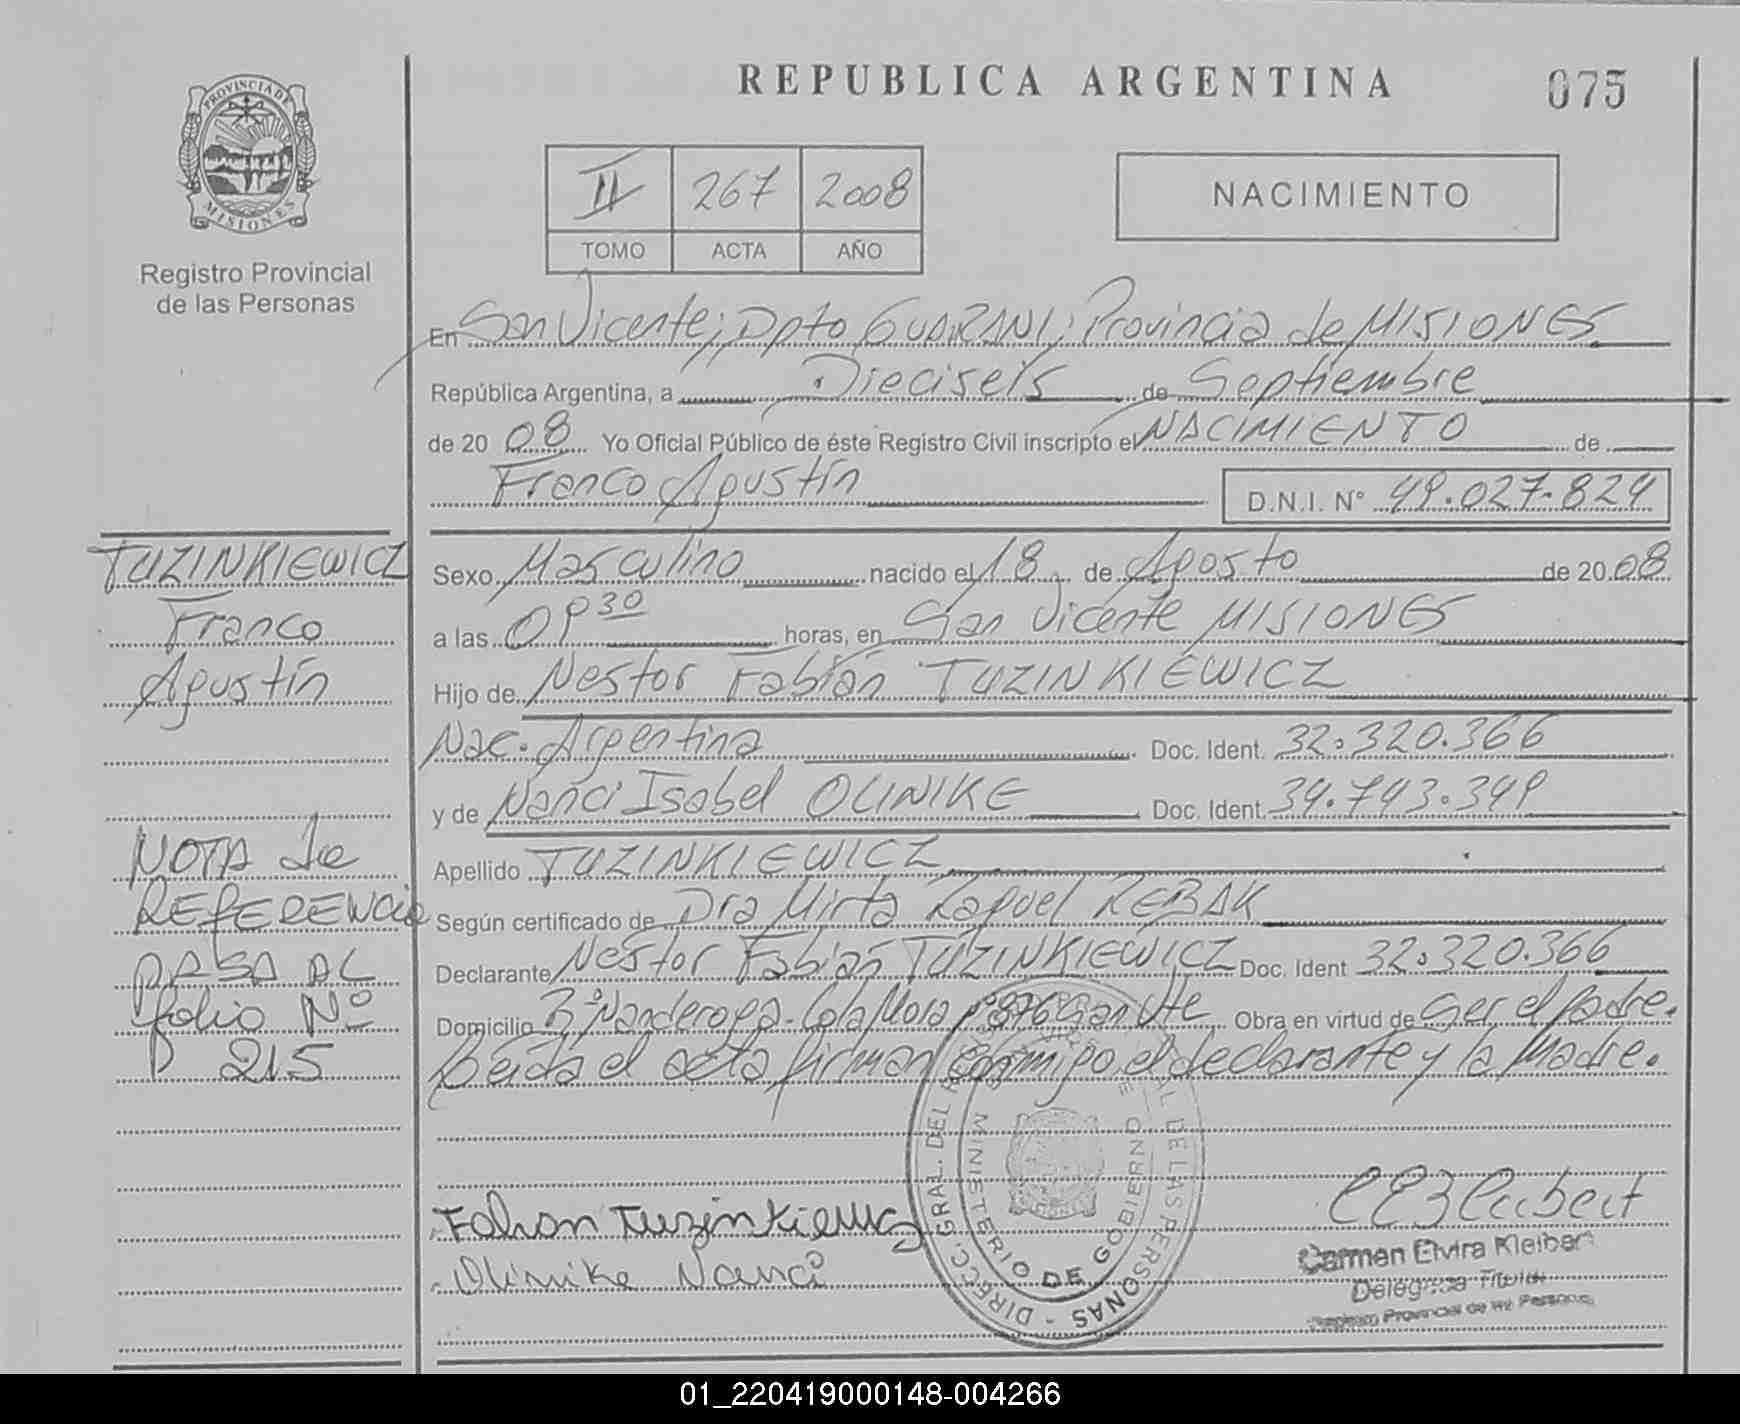 REPUBLICA ARGENTINA
075
PROVINCIA DE
MISIONES
Registro Provincial
de las Personas
II 267 2008
TOMO ACTA AÑO
NACIMIENTO
En San Vicente; Dpto GUARANI; Provincia de MISIONES
República Argentina, a Dieciseis de Septiembre
de 2008 Yo Oficial Público de éste Registro Civil inscripto el NACIMIENTO de
Franco Agustín D.N.I. N° 49.027.824
TUZINKIEWICZ
Franco
Agustín
Sexo Masculino nacido el 18 de Agosto de 2008
a las 09 30 horas, en San Vicente MISIONES
Hijo de Nestor Fabián TUZINKIEWICZ
Nac. Argentina Doc. Ident. 32.320.366
y de Nanci Isabel OLINIKE Doc. Ident. 34.743.349
Apellido TUZINKIEWICZ
Según certificado de Dra Mirta Raquel REBAK
Declarante Nestor Fabián TUZINKIEWICZ Doc. Ident 32.320.366
Domicilio Bº Ñanderoga - San Vte Obra en virtud de ser el padre.
Leída el acta firman conmigo el declarante y la Madre.
NOTA de
REFERENCIA
PASA AL
folio Nº
215
Fabian Tuzinkiewicz
Olinike Nanci
DIRECC. GRAL. DEL DE LAS PERSONAS
MINISTERIO DE GOBIERNO
Carmen Elvira Kleibert
Delegada Titular
Registro Provincial de las Personas
01_220419000148-004266